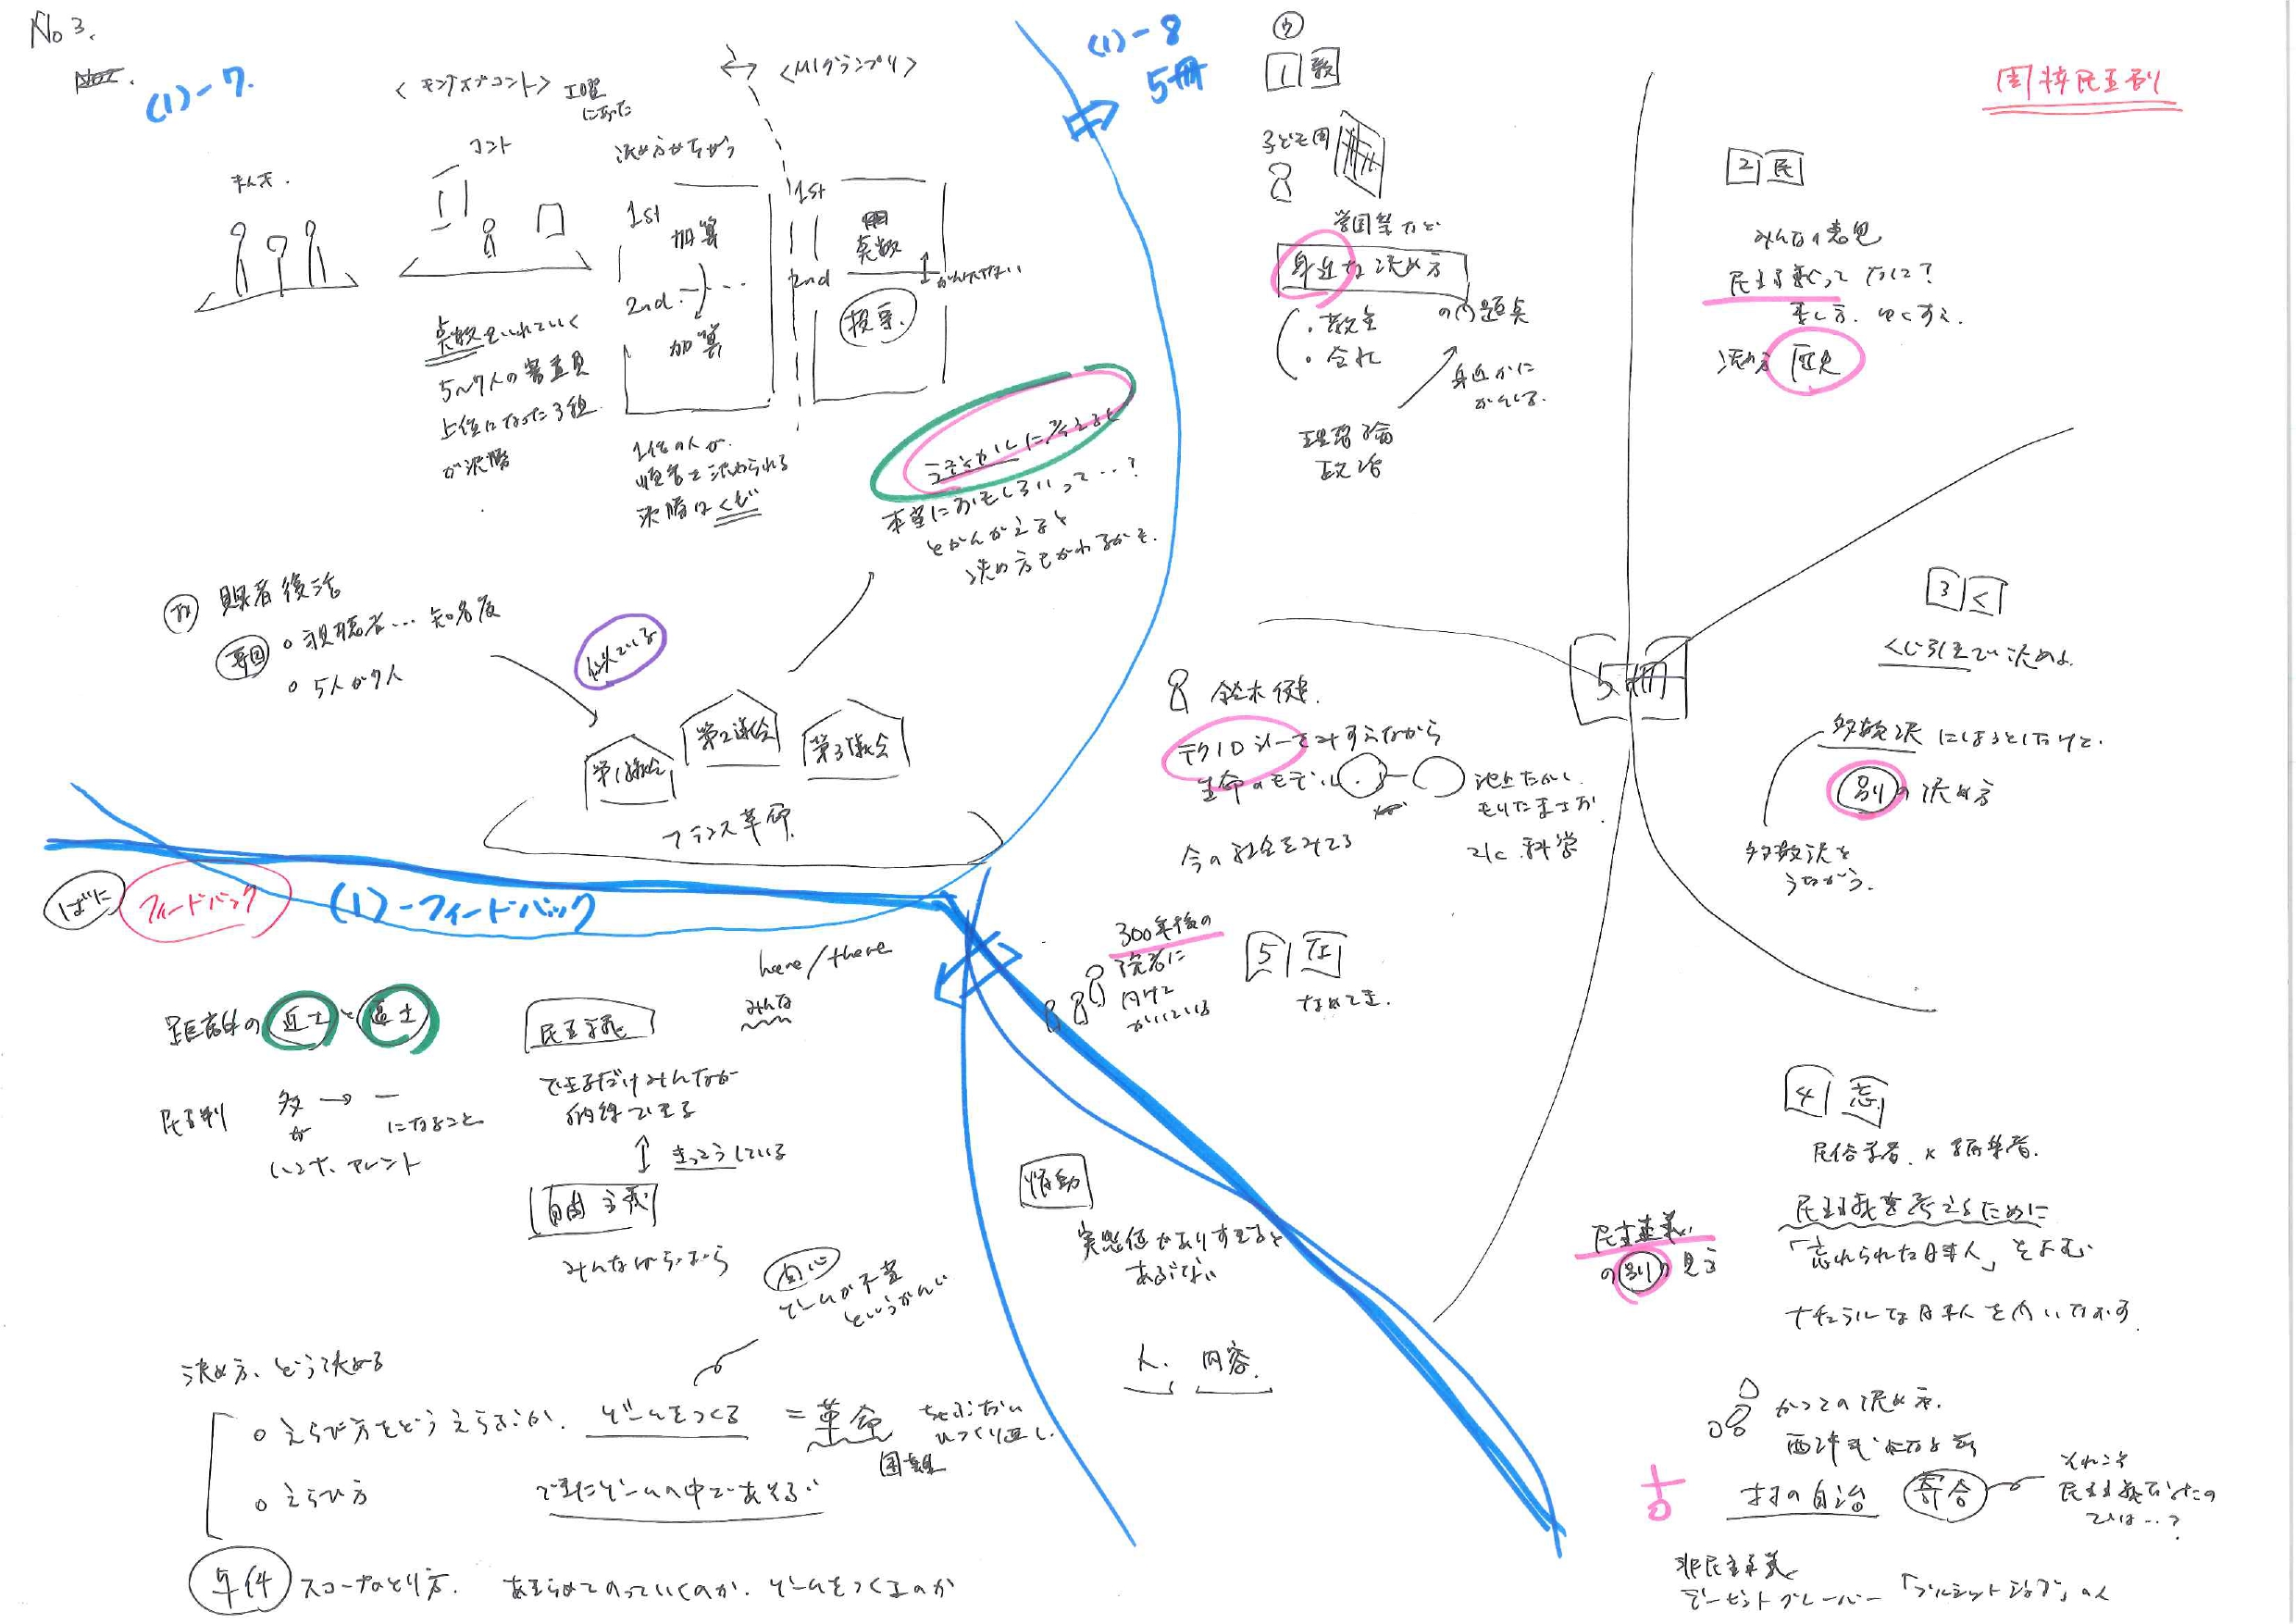 No 3.
(1)-7.
<キングオブコント> 土曜
になった
↔ <M1グランプリ>
まんざい
コント
決め方がちがう
1st
加算
2nd
加算
1st
点数
2nd
投票.
点数をいれていく
5〜7人の審査員
上位になった3組
が決勝
1位の人が
順番を決められる
決勝はくじ
ラディカルに考えると
本当におもしろいって…?
とかんがえると
決め方もかわるかも.
敗者復活
要因
○ 視聴者… 知名度
○ 5人か7人
似ている
第1議会
第2議会
第3議会
フランス革命
(1)-8
5冊
1 教
子ども向
学国祭など
身近な決め方
の問題点
・教室
・会社
身近かに
かんじる.
理論
政治
周辺民主制
2 民
みんなの意見
民主主義ってなに?
決め方 歴史
3 く
くじ引きで決めよ
多数決にしようとしたけど.
別の決め方
多数決を
うたがう.
5冊
鈴木健.
テクノロジーをみすえながら
生命のモデル
今の社会をみてる
科学
300年後の
読者に
向けて
かいている
5 なめ
なめてき.
4 忘
民俗学者 × 哲学者.
民主主義を考えるために
「忘れられた日本人」をよむ
ナチュラルな日本人をみいだす
民主主義
の別の見方
かつての決め方.
西洋式になる前
村の自治
寄合
それこそ
民主主義だったの
では…?
非民主主義
デービット グレーバー 「ブルシットジョブ」の人
フィードバック
(1)-フィードバック
here/there
みんな
距離の 近さ と 遠さ
民主制
多 → 一
が
になること
ハンナ.アレント
民主主義
できるだけみんなが
納得できる
↕ きっこうしている
自由主義
みんなばらばら
関心
ゲームが不当
というかんじ
決め方、どう決める
○ えらび方をどうえらぶか. ゲームをつくる = 革命
ちゃぶだい
ひっくり返し.
○ えらび方
できたゲームの中であそぶ
与件 スコープのとり方. あきらめてのっていくのか. ゲームをつくるのか
情動
実態値がありすぎると
あぶない
人. 内容.